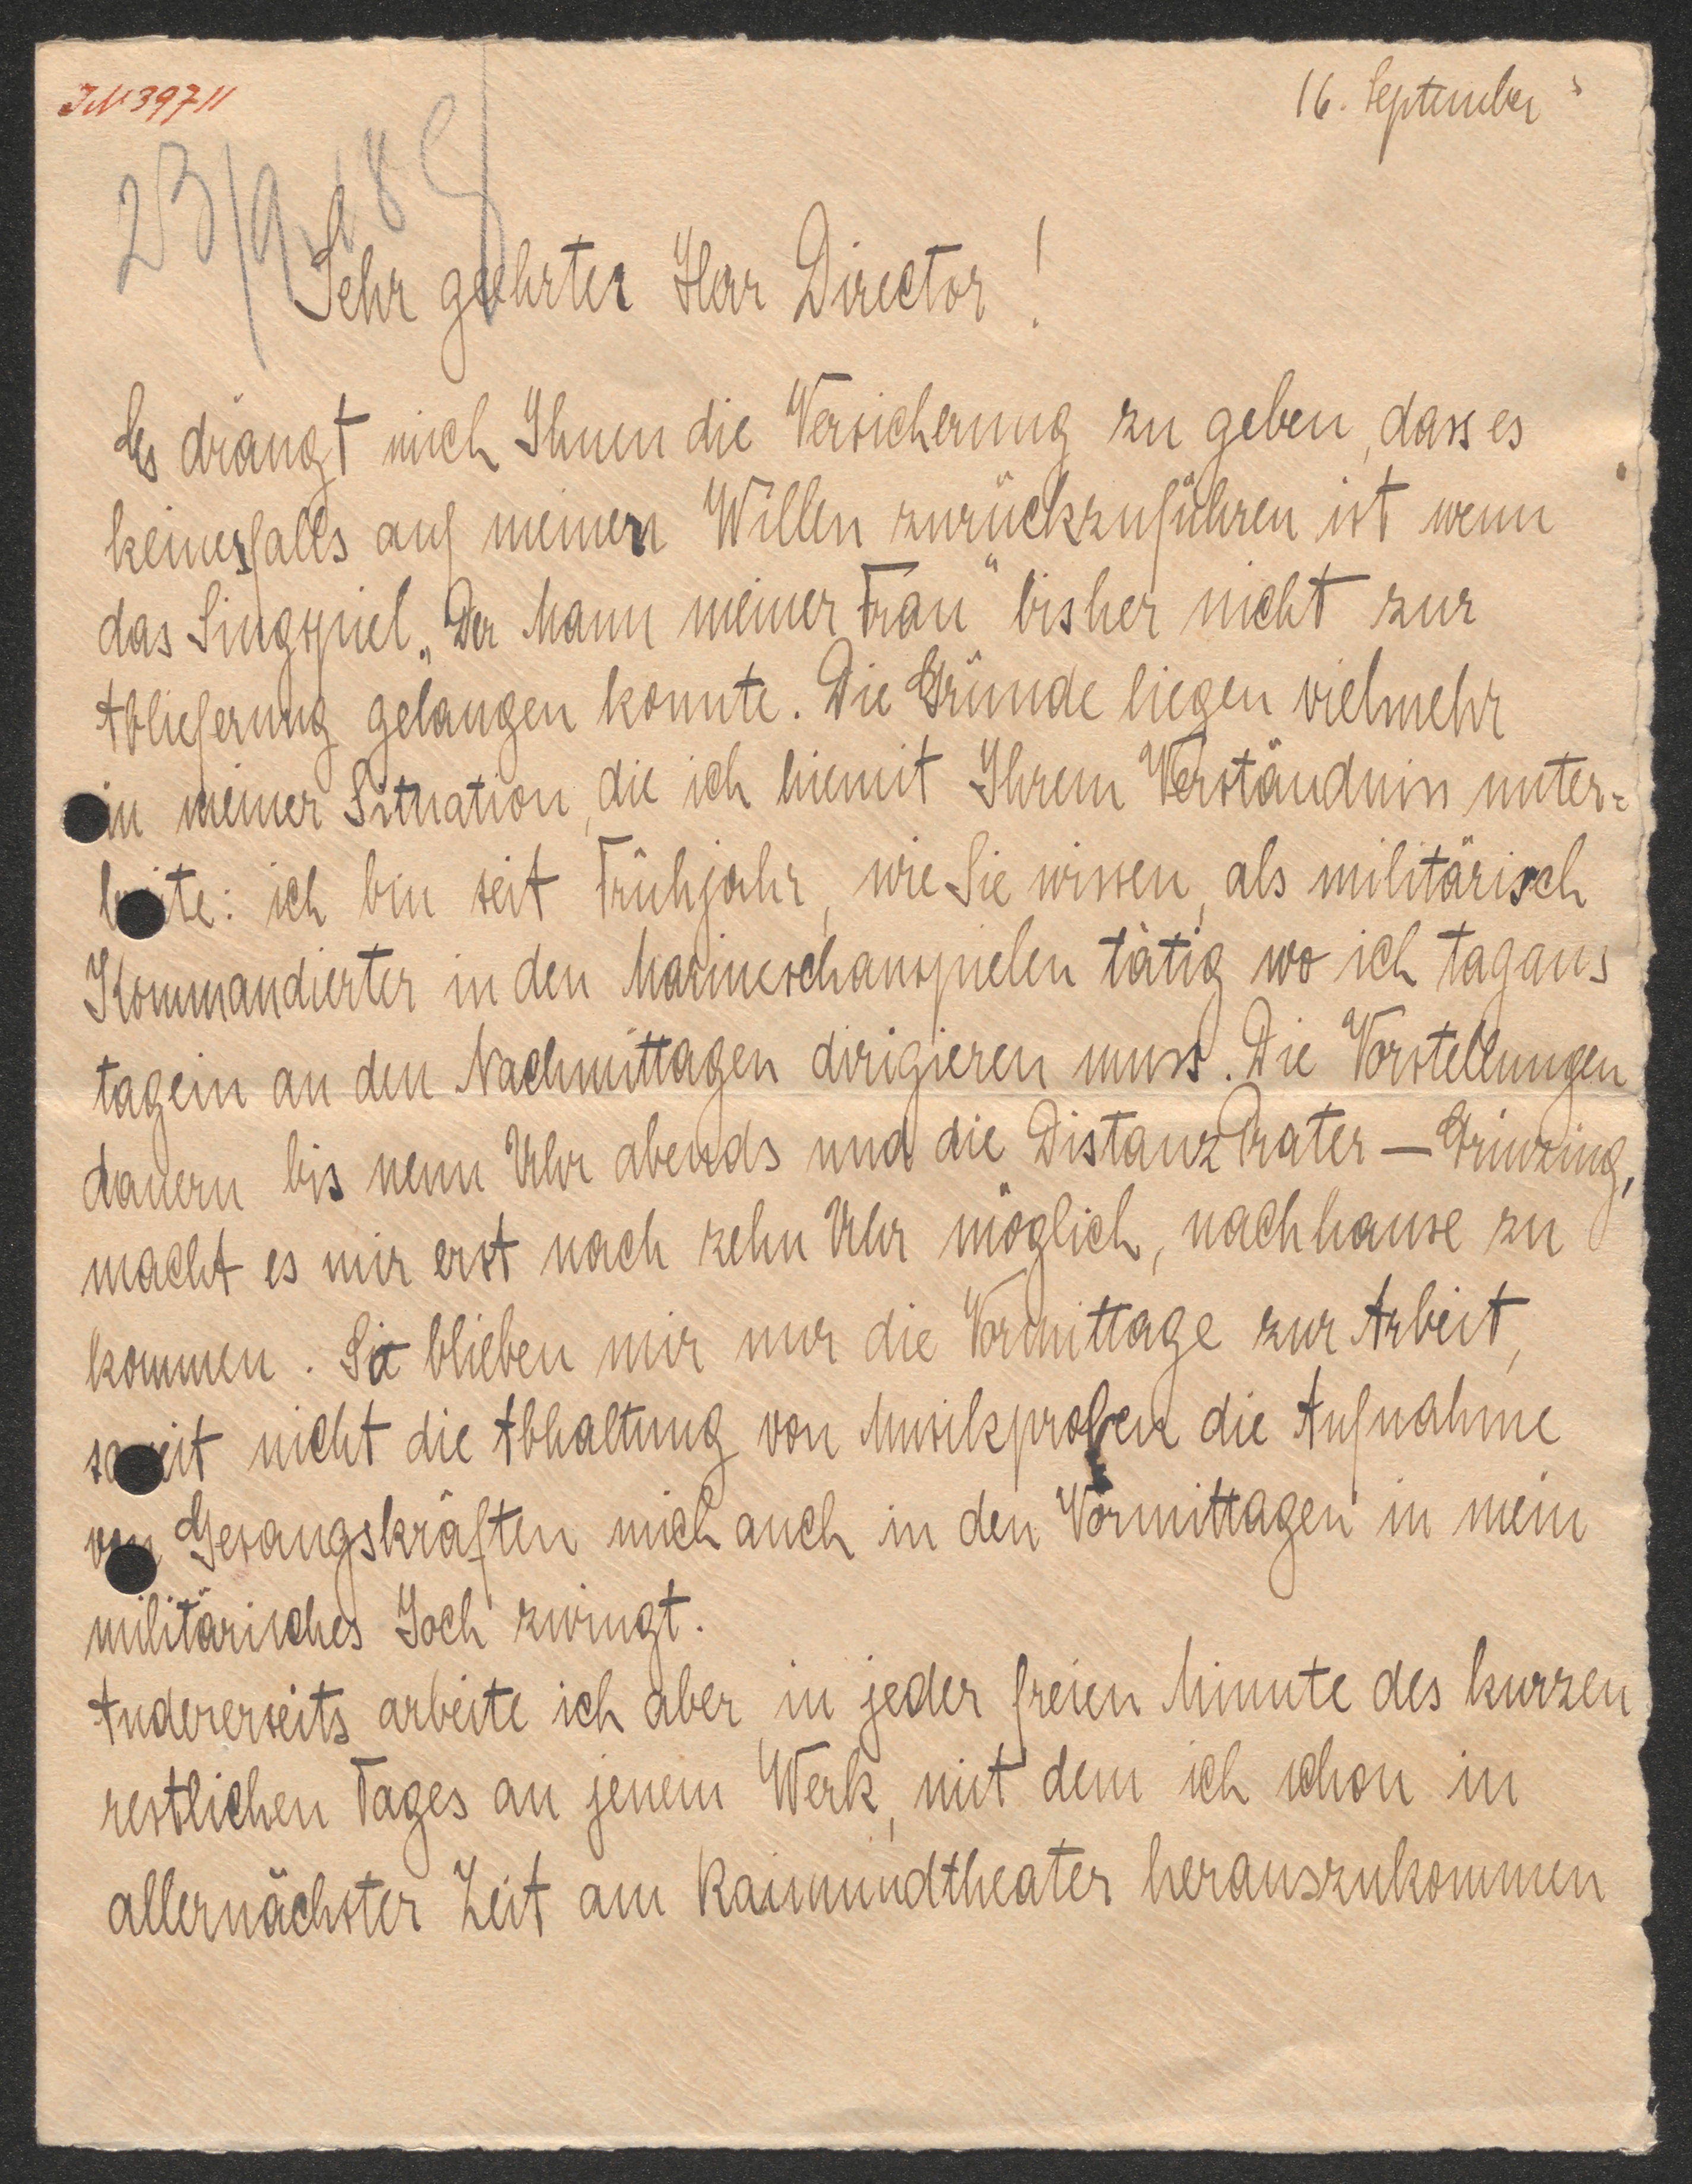 IN 39711
16. September
23/9. 18
Sehr geehrter Herr Director!
Es drängt mich Ihnen die Versicherung zu geben, dass es
keinesfalls auf meinen Willen zurückzuführen ist wenn
das Singspiel „Der Mann meiner Frau" bisher nicht zur
Ablieferung gelangen konnte. Die Gründe liegen vielmehr
in meiner Situation, die ich hiemit Ihrem Verständnis unter-
breite: ich bin seit Frühjahr, wie Sie wissen, als militärisch
Kommandierter in den Marineschauspielen tätig wo ich tagaus
tagein an den Nachmittagen dirigieren muss. Die Vorstellungen
dauern bis neun Uhr abends und die Distanz Prater — Grinzing,
macht es mir erst nach zehn Uhr möglich, nachhause zu
kommen. So blieben mir nur die Vormittage zur Arbeit,
soweit nicht die Abhaltung von Musikproben die Aufnahme
von Gesangskräften mich auch in den Vormittagen in mein
militärisches Joch zwingt.
Andererseits arbeite ich aber in jeder freien Minute des kurzen
restlichen Tages an jenem Werk, mit dem ich schon in
allernächster Zeit am Raimundtheater herauszukommen